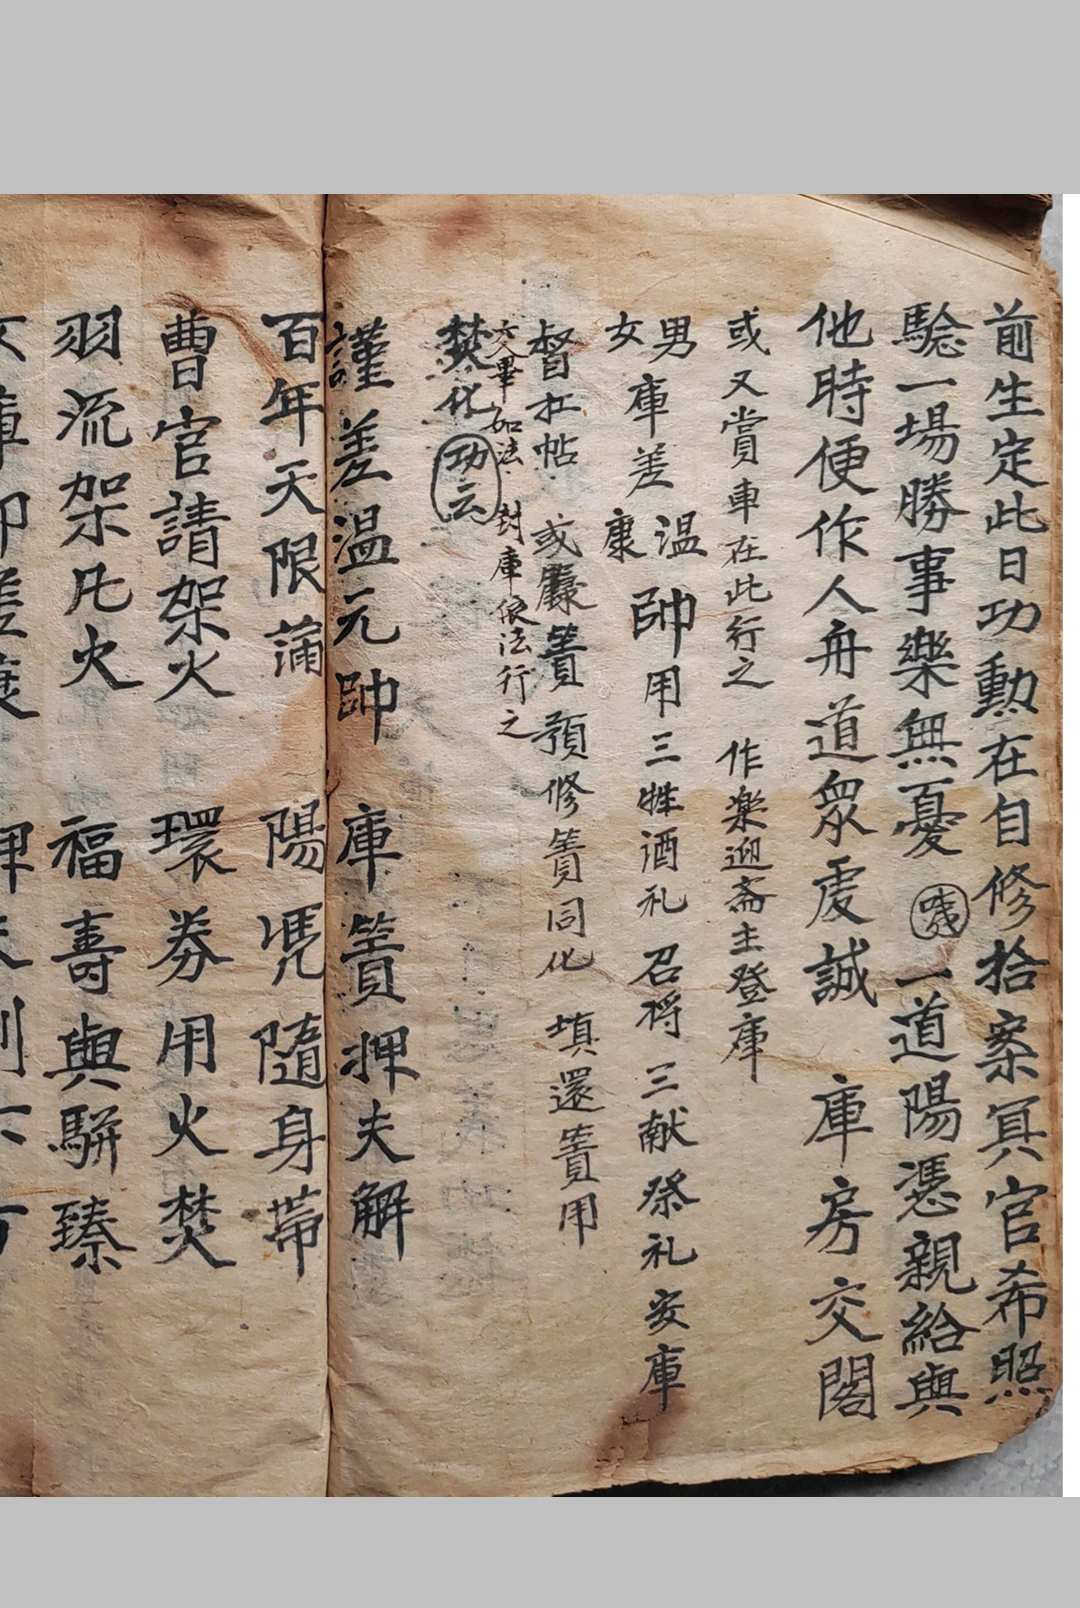 前生定此日功勳在自修拾案冥官希照
驗一場勝事樂無憂 一道陽憑親給與
他時便作人舟道眾虔誠 庫房交閣
或又賞車在此行之 作楽迎斎主登庫
男女庫差溫康帥用三牲酒礼 召将三献祭礼安庫
督扛帖 或 預修 同化 填還 用
文畢如法 封庫依法行之
焚化 功云
謹差溫元帥 庫 押夫解
百年天限滿 陽凭隨身帶
曹官請架火 環券用火焚
羽流架凡火 福壽與駢臻